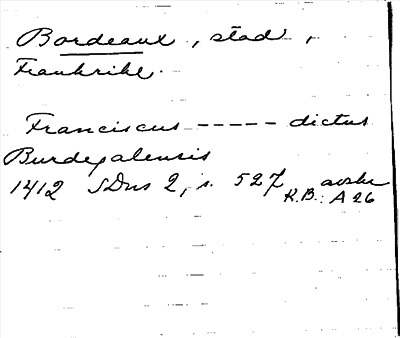 Bordeaux, stad,
Frankrike.
Franciscus ----- dictus
Burdegalensis
1412 SDns 2, s. 527 avskr
K.B.: A 26